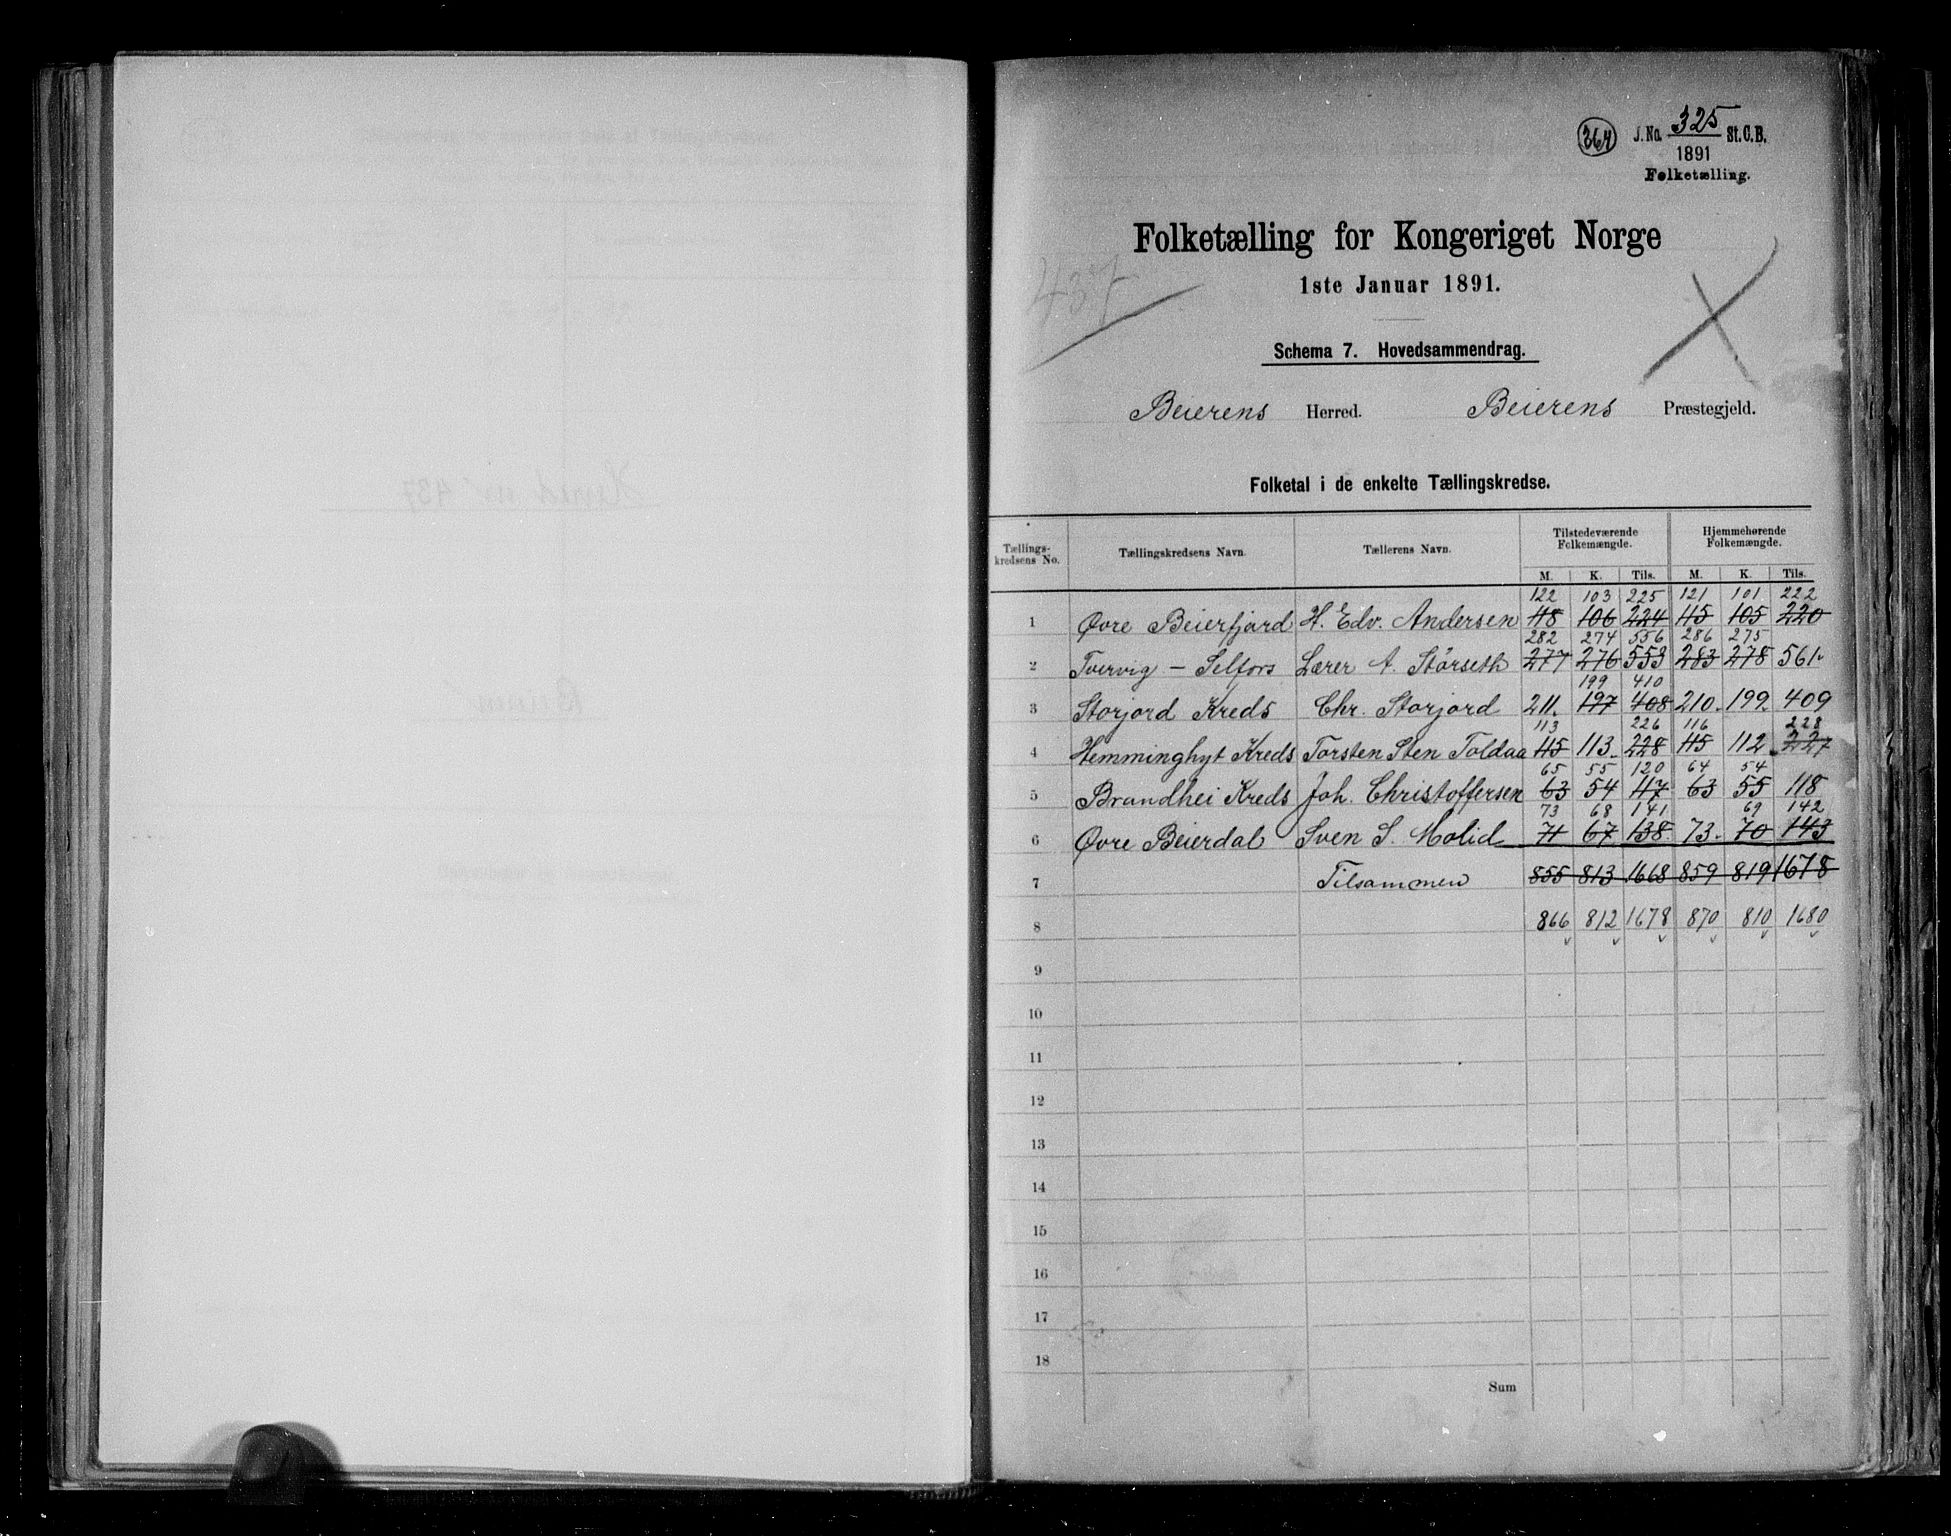 364 J.No. 325 St.C.B.
1891
Folketælling.
Folketælling for Kongeriget Norge
437
1ste Januar 1891.
Schema 7. Hovedsammendrag.
Beierens Herred. Beierens Præstegjeld.
Folketal i de enkelte Tællingskredse.
Tællings-kredsens No. Tællingskredsens Navn. Tællerens Navn. Tilstedeværende Folkemængde. Hjemmehørende Folkemængde.
M. K. Tils. M. K. Tils.
122 103 225 121 101 222
1 Øvre Beierfjord H. Edv. Andersen 118 106 224 115 105 220
282 274 556 286 275
2 Tvervig - Selfors Lærer A. Störseth 277 276 553 283 278 561
199 410
3 Storjord Kreds Chr. Storjord 211. 197 408 210. 199 409
113 226 116 228
4 Hemminghyt Kreds Torsten Sten Toldaa 115 113 228 115 112 227
65 55 120 64 54
5 Brandhei Kreds Joh. Christoffersen 63 54 117 63 55 118
73 68 141 69 142
6 Øvre Beierdal Sven S. Molid 71 67 138 73. 70 143
7 Tilsammen 855 813 1668 859 819 1678
8 866 812 1678 870 810 1680
9
10
11
12
13
14
15
16
17
18
Sum